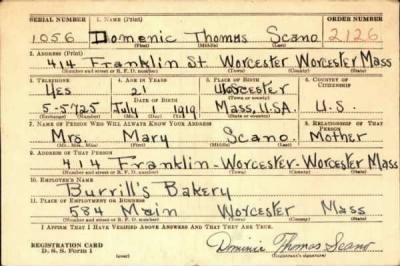 SERIAL NUMBER 1. NAME (Print) ORDER NUMBER
1056 Domenic Thomas Scano 2126
(First) (Middle) (Last)
2. ADDRESS (Print)
414 Franklin St. Worcester Worcester Mass
(Number and street or R. F. D. number) (Town) (County) (State)
3. TELEPHONE 4. AGE IN YEARS 5. PLACE OF BIRTH 6. COUNTRY OF CITIZENSHIP
Yes 21 Worcester
DATE OF BIRTH (Town or county)
5-5725 July 1919 Mass, U.S.A. U.S.
7. NAME OF PERSON WHO WILL ALWAYS KNOW YOUR ADDRESS 8. RELATIONSHIP OF THAT PERSON
Mrs. Mary Scano. Mother
(Mr., Mrs., Miss) (First) (Middle) (Last)
9. ADDRESS OF THAT PERSON
414 Franklin-Worcester-Worcester Mass
(Number and street or R. F. D. number) (Town) (County) (State)
10. EMPLOYER'S NAME
Burrill's Bakery
11. PLACE OF EMPLOYMENT OR BUSINESS
584 Main Worcester Mass
(Number and street or R. F. D. number) (Town) (County) (State)
I AFFIRM THAT I HAVE VERIFIED ABOVE ANSWERS AND THAT THEY ARE TRUE.
REGISTRATION CARD
D. S. S. Form 1 (over) Dominic Thomas Scano
(Registrant's signature)